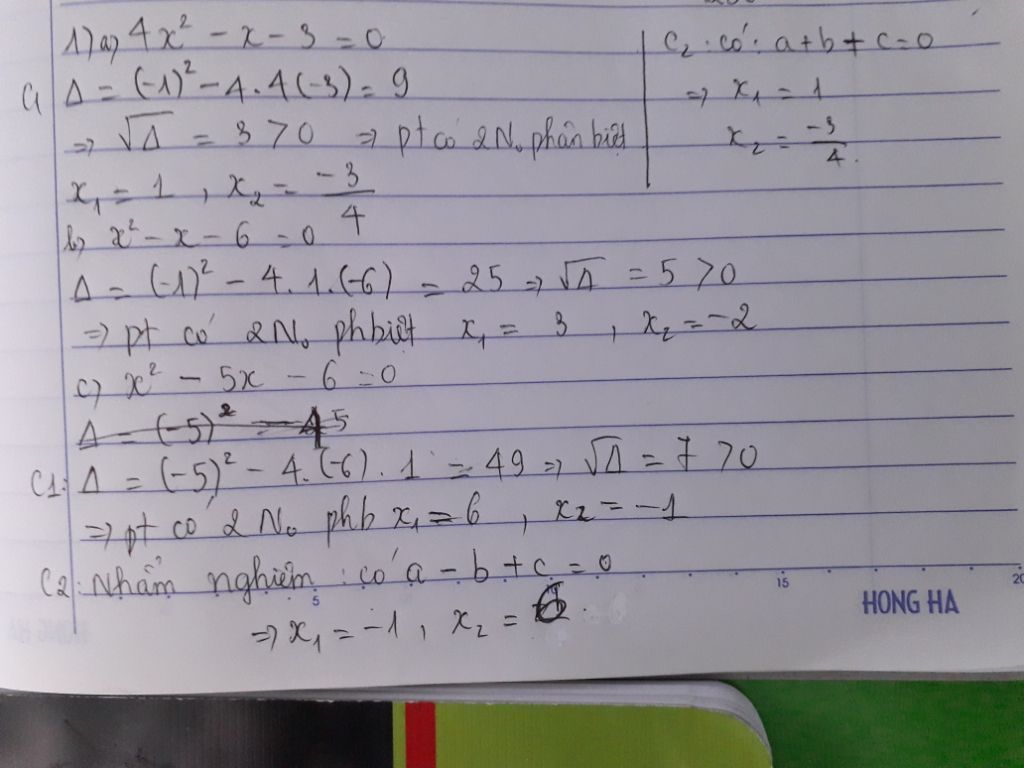 1) a, 4x² - x - 3 = 0
C1 Δ = (-1)² - 4.4(-3) = 9
=> √Δ = 3 > 0 => pt có 2 No phân biệt
x₁ = 1 , x₂ = -3/4
C2 : có : a + b + c = 0
=> x₁ = 1
x₂ = -3/4.
b, x² - x - 6 = 0
Δ = (-1)² - 4.1.(-6) = 25 => √Δ = 5 > 0
=> pt có 2 No ph biệt x₁ = 3 , x₂ = -2
c) x² - 5x - 6 = 0
C1: Δ = (-5)² - 4.(-6).1 = 49 => √Δ = 7 > 0
=> pt có 2 No phb x₁ = 6 , x₂ = -1
C2: Nhẩm nghiệm : có a - b + c = 0
=> x₁ = -1, x₂ = 6.
5 15 20
HONG HA